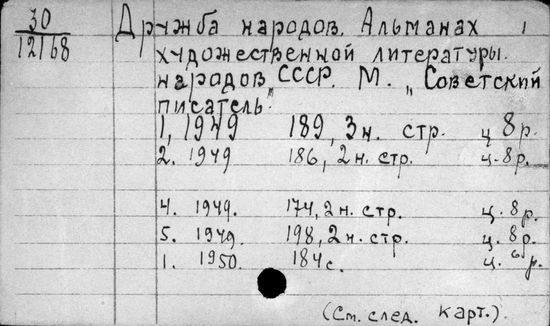 30
12168
Дружба народов. Альманах 1
художественной литературы.
народов СССР. М. „Советский
писатель"
1, 1949 189, 3 н. стр. ц 8 р.
2. 1949 186, 2 н. стр. ц. 8 р.
4. 1949. 174, 2 н. стр. ц. 8 р.
5. 1949. 198, 2 н. стр. ц. 8 р.
1. 1950. 184 с. ц. 6 р.
(См. след. карт.).